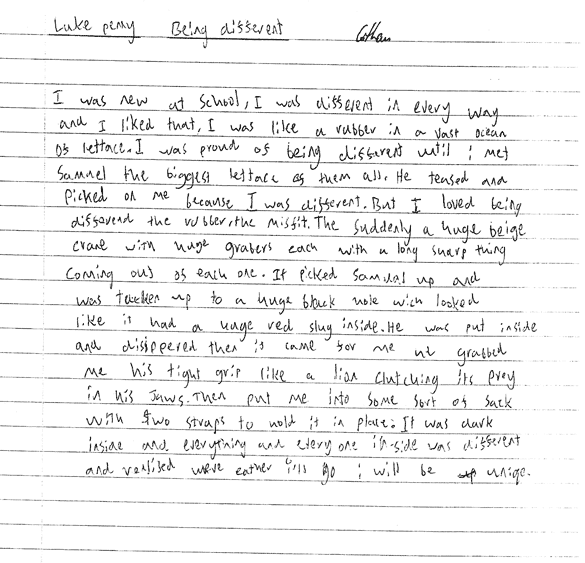 Luke perry Being different
I was new at school, I was different in every way
and I liked that, I was like a rubber in a vast ocean
of lettace. I was proud of being different until i met
Samuel the biggest lettace of them all. He teased and
picked on me because I was different. But I loved being
differend the rubber, the misfit. The suddenly a huge beige
crane with huge grabers each with a long sharp thing
coming out of each one. It picked Samual up and
was taken up to a huge black hole wich looked
like it had a huge red slug inside. He was put inside
and disippered then it came for me it grabbed
me his tight grip like a lion clutching its prey
in his jaws. Then put me into some sort of sack
with two straps to hold it in place. It was dark
inside and everything and every one in-side was different
and realised were eather i'll go i will be uniqe.